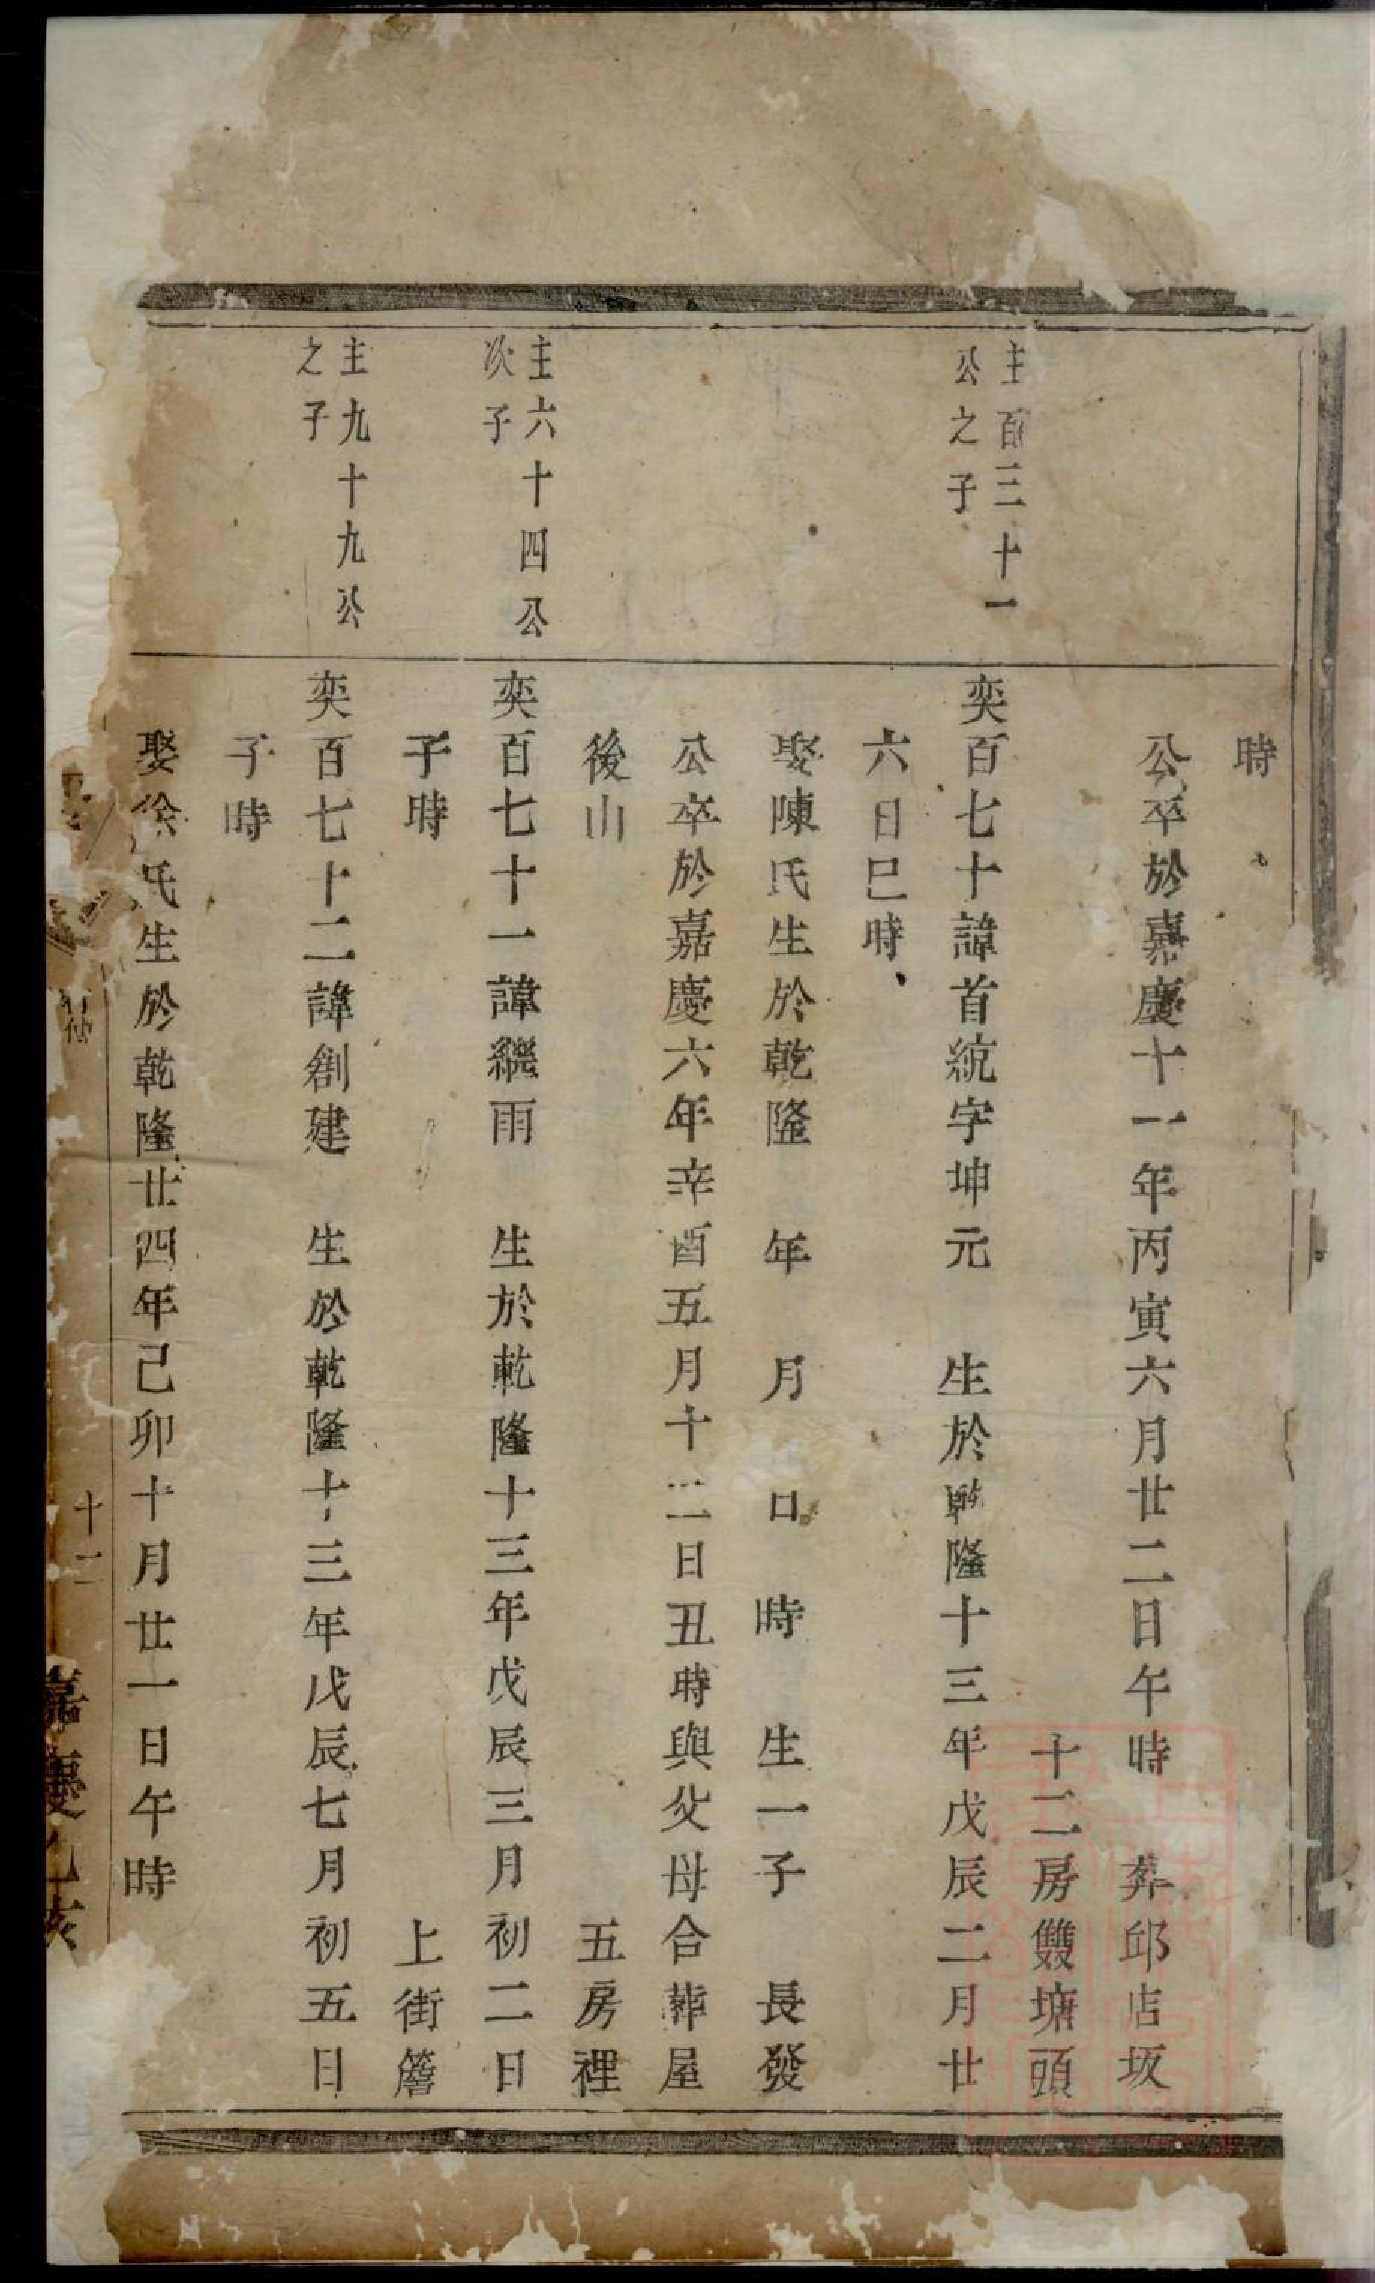 時
公卒於嘉慶十一年丙寅六月廿二日午時　葬邱店坂
十二房雙塘頭
主百三十一
公之子
奕百七十諱首統字坤元　生於乾隆十三年戊辰二月廿
六日巳時
娶陳氏生於乾隆　年　月　日　時　生一子　長發
公卒於嘉慶六年辛酉五月十二日丑時與父母合葬屋
後山
五房裡
主六十四公
次子
奕百七十一諱繼雨　生於乾隆十三年戊辰三月初二日
子時
上街簷
主九十九公
之子
奕百七十二諱創建　生於乾隆十三年戊辰七月初五日
子時
娶徐氏生於乾隆廿四年己卯十月廿一日午時
十二
嘉慶